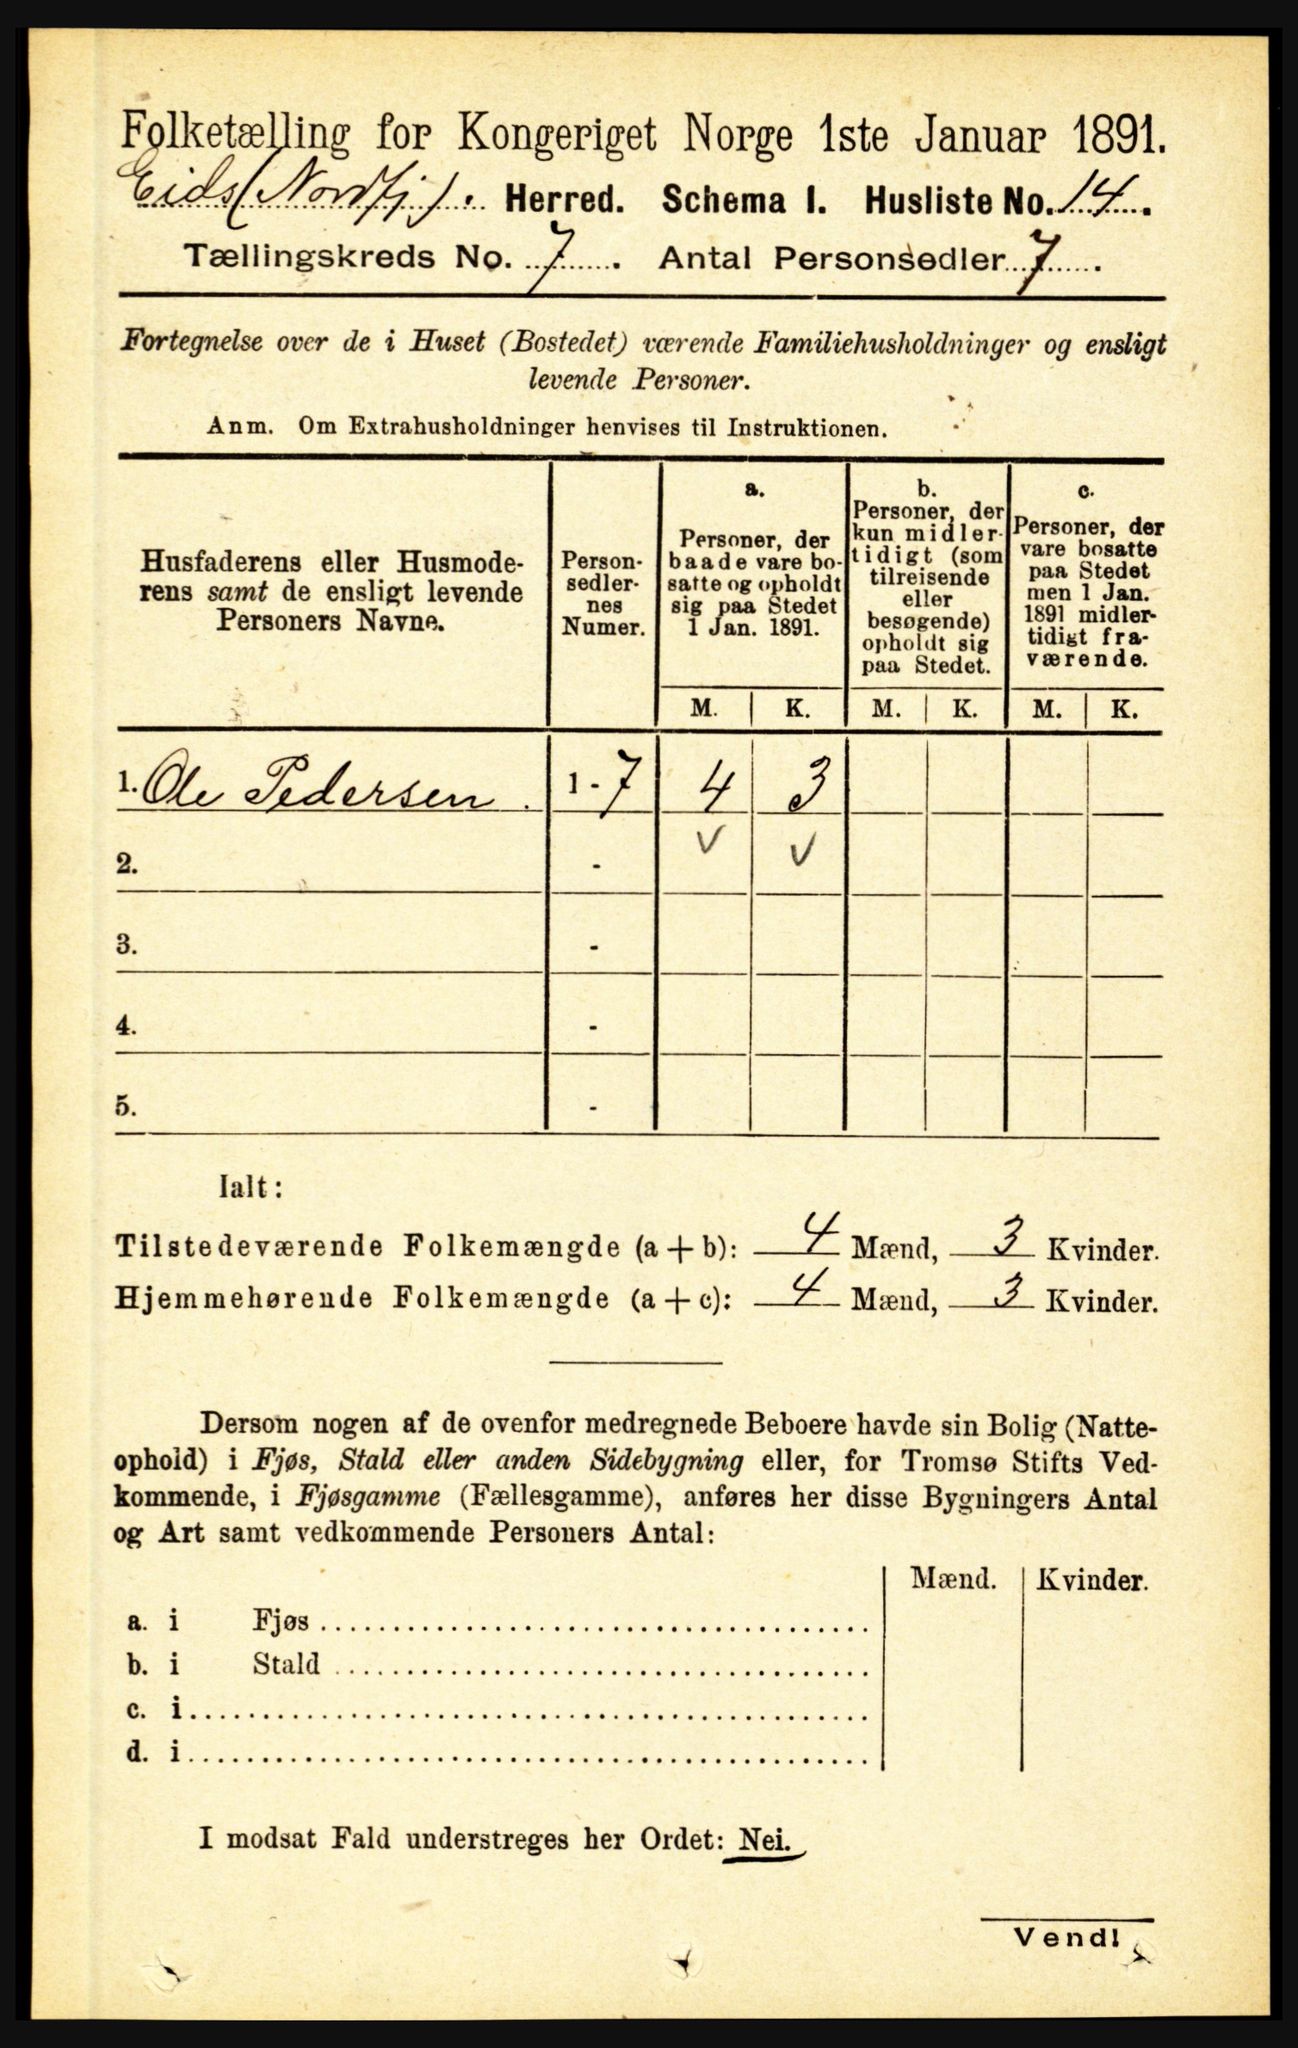 Folketælling for Kongeriget Norge 1ste Januar 1891.
Eids (Nordfj). Herred. Schema I. Husliste No. 14.
Tællingskreds No. 7. Antal Personsedler 7.
Fortegnelse over de i Huset (Bostedet) værende Familiehusholdninger og ensligt
levende Personer.
Anm. Om Extrahusholdninger henvises til Instruktionen.
Husfaderens eller Husmode-
rens samt de ensligt levende
Personers Navne.
Person-
sedler-
nes
Numer.
a.
Personer, der
baade vare bo-
satte og opholdt
sig paa Stedet
1 Jan. 1891.
b.
Personer, der
kun midler-
tidigt (som
tilreisende
eller
besøgende)
opholdt sig
paa Stedet.
c.
Personer, der
vare bosatte
paa Stedet
men 1 Jan.
1891 midler-
tidigt fra-
værende.
M. K. M. K. M. K.
1. Ole Pedersen. 1-7 4 3
2. - v v
3. -
4. -
5. -
Ialt:
Tilstedeværende Folkemængde (a+b): 4 Mænd, 3 Kvinder.
Hjemmehørende Folkemængde (a+c): 4 Mænd, 3 Kvinder.
Dersom nogen af de ovenfor medregnede Beboere havde sin Bolig (Natte-
ophold) i Fjøs, Stald eller anden Sidebygning eller, for Tromsø Stifts Ved-
kommende, i Fjøsgamme (Fællesgamme), anføres her disse Bygningers Antal
og Art samt vedkommende Personers Antal:
Mænd. Kvinder.
a. i Fjøs
b. i Stald
c. i
d. i
I modsat Fald understreges her Ordet: Nei.
Vend!